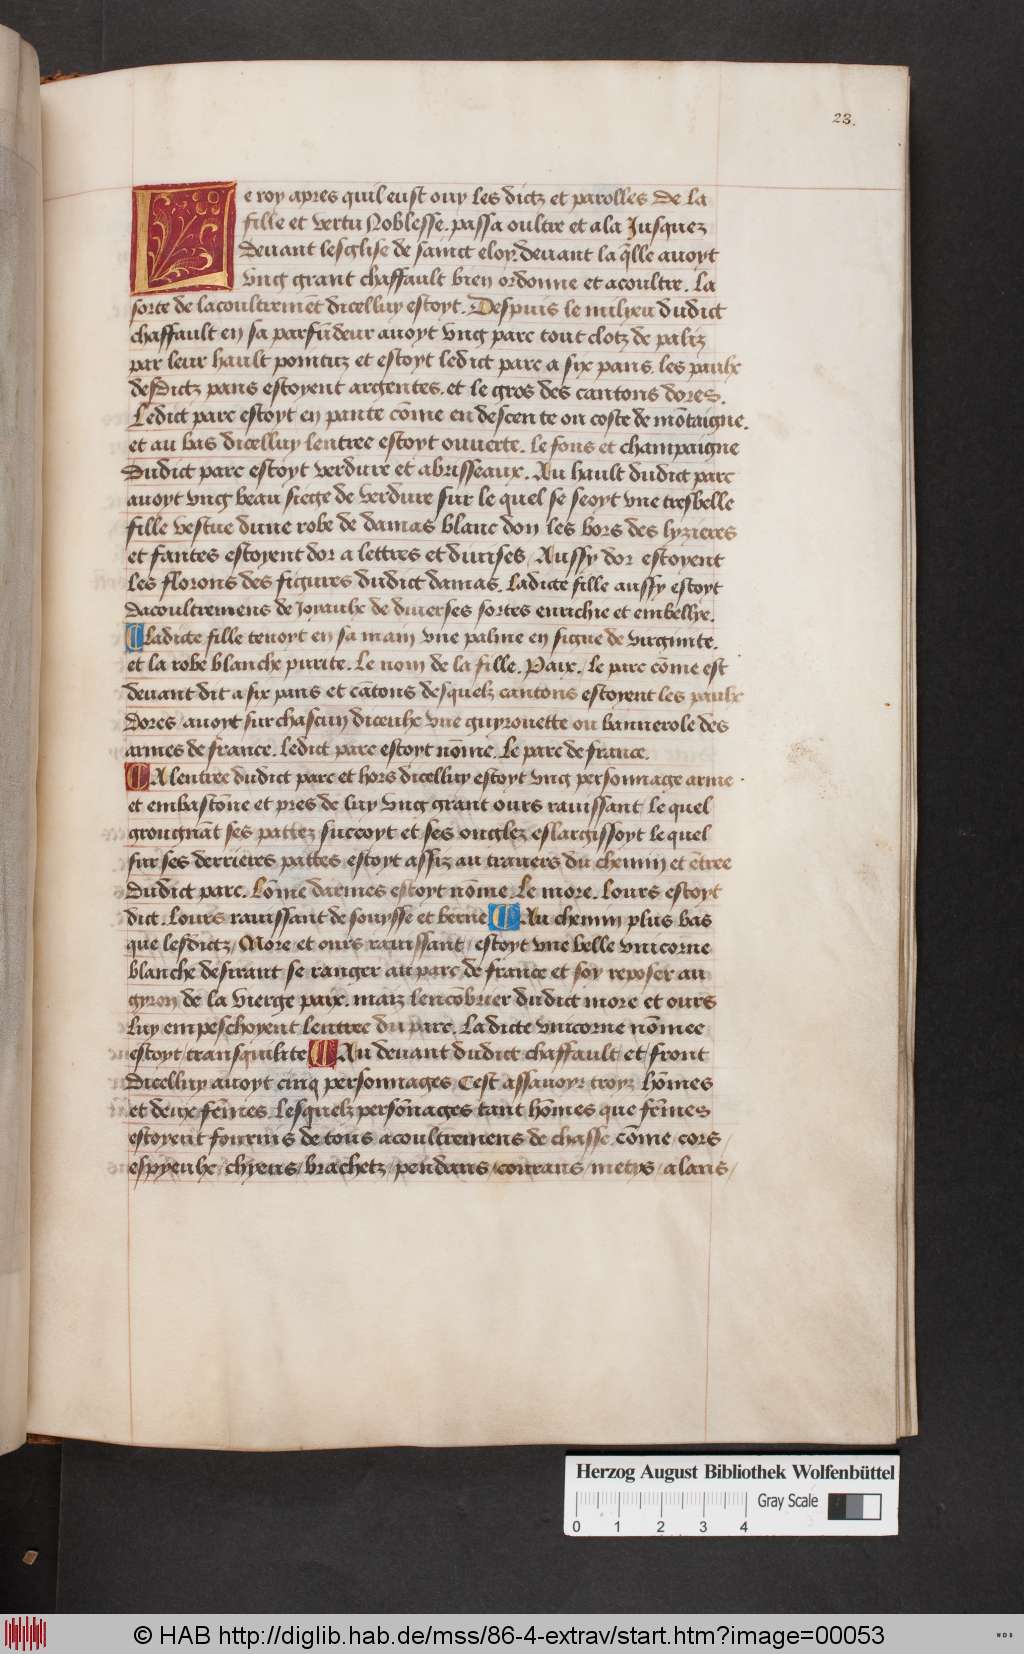 23.
Le roy apres quil eust ouy les dictz et parolles De la
fille et vertu Noblesse. passa oultre et ala Jusquez
Devant lesglise de sainct eloy. devant la q̃lle avoyt
vng grant chaffault bien ordonne et acoultre. La
sorte de lacoultremẽt dicelluy estoyt. Despuis le milyeu dudict
chaffault en sa parfũdeur avoyt vng parc tout clotz de paliz
par leur hault pointuz et estoyt ledict parc a six pans. les paulx
desdictz pans estoyent argentes. et le gros des cantons dores.
Ledict parc estoyt en pante cõme en descente ou coste de mõtaigne.
et au bas dicelluy lentree estoyt ouverte. Le fons et champaigne
Dudict parc estoyt verdure et abrisseaux. Au hault dudict parc
avoyt vng beau siege de verdure sur le quel se seoyt vne tresbelle
fille vestue dune robe de damas blanc don les bors des lyzieres
et fantes estoyent dor a lettres et diuises / Aussy dor estoyent
les florons des figures dudict damas. Ladicte fille aussy estoyt
Dacoultremens de Joyaulx de diuerses sortes enrichie et embellye.
Ladicte fille tenoyt en sa main vne palme en signe de virginite.
et la robe blanche purite. Le nom de la fille. Paix. Le parc cõme est
devant dit a six pans et cãtons desquelz cantons estoyent les paulx
Dores / avoyt sur chascun diceulx vne guyrouette ou bannerole des
armes de france. Ledict parc estoyt nõme. Le parc de france.
A lentree dudict parc et hors dicelluy estoyt vng personnage arme
et embastõne et pres de luy vng grant ours rauissant le quel
grougnãt ses pattez suceoyt et ses onglez eslargissoyt le quel
sur ses derrieres pattes estoyt assiz au travers du chemin et ẽtree
Dudict parc. Lõme darmes estoyt nõme. Le more. Lours estoyt
dict. Lours rauissant de souysse et berne Au chemin plus bas
que lesdictz / More / et ours rauissant / estoyt vne belle vnicorne
blanche desirant se ranger au parc de france et soy reposer au
gyron de la vierge paix. maiz lencõbrier dudict more et ours
Luy empeschoyent lentree du parc. Ladicte vnicorne nõmee
estoyt / transquilite Au devant dudict chaffault et / front
Dicelluy avoyt cinq personnages / Cest assavoyr troyz hõmes
et deux fẽmes. Lesquelz persõnages tant hõmes que fẽmes
estoyent fournis de tous acoultremens de chasse / cõme / cors /
espyeulx / chyens / brachetz / pendans / courans / metys / alans /
Herzog August Bibliothek Wolfenbüttel
Gray Scale
0 1 2 3 4
© HAB http://diglib.hab.de/mss/86-4-extrav/start.htm?image=00053
WDB